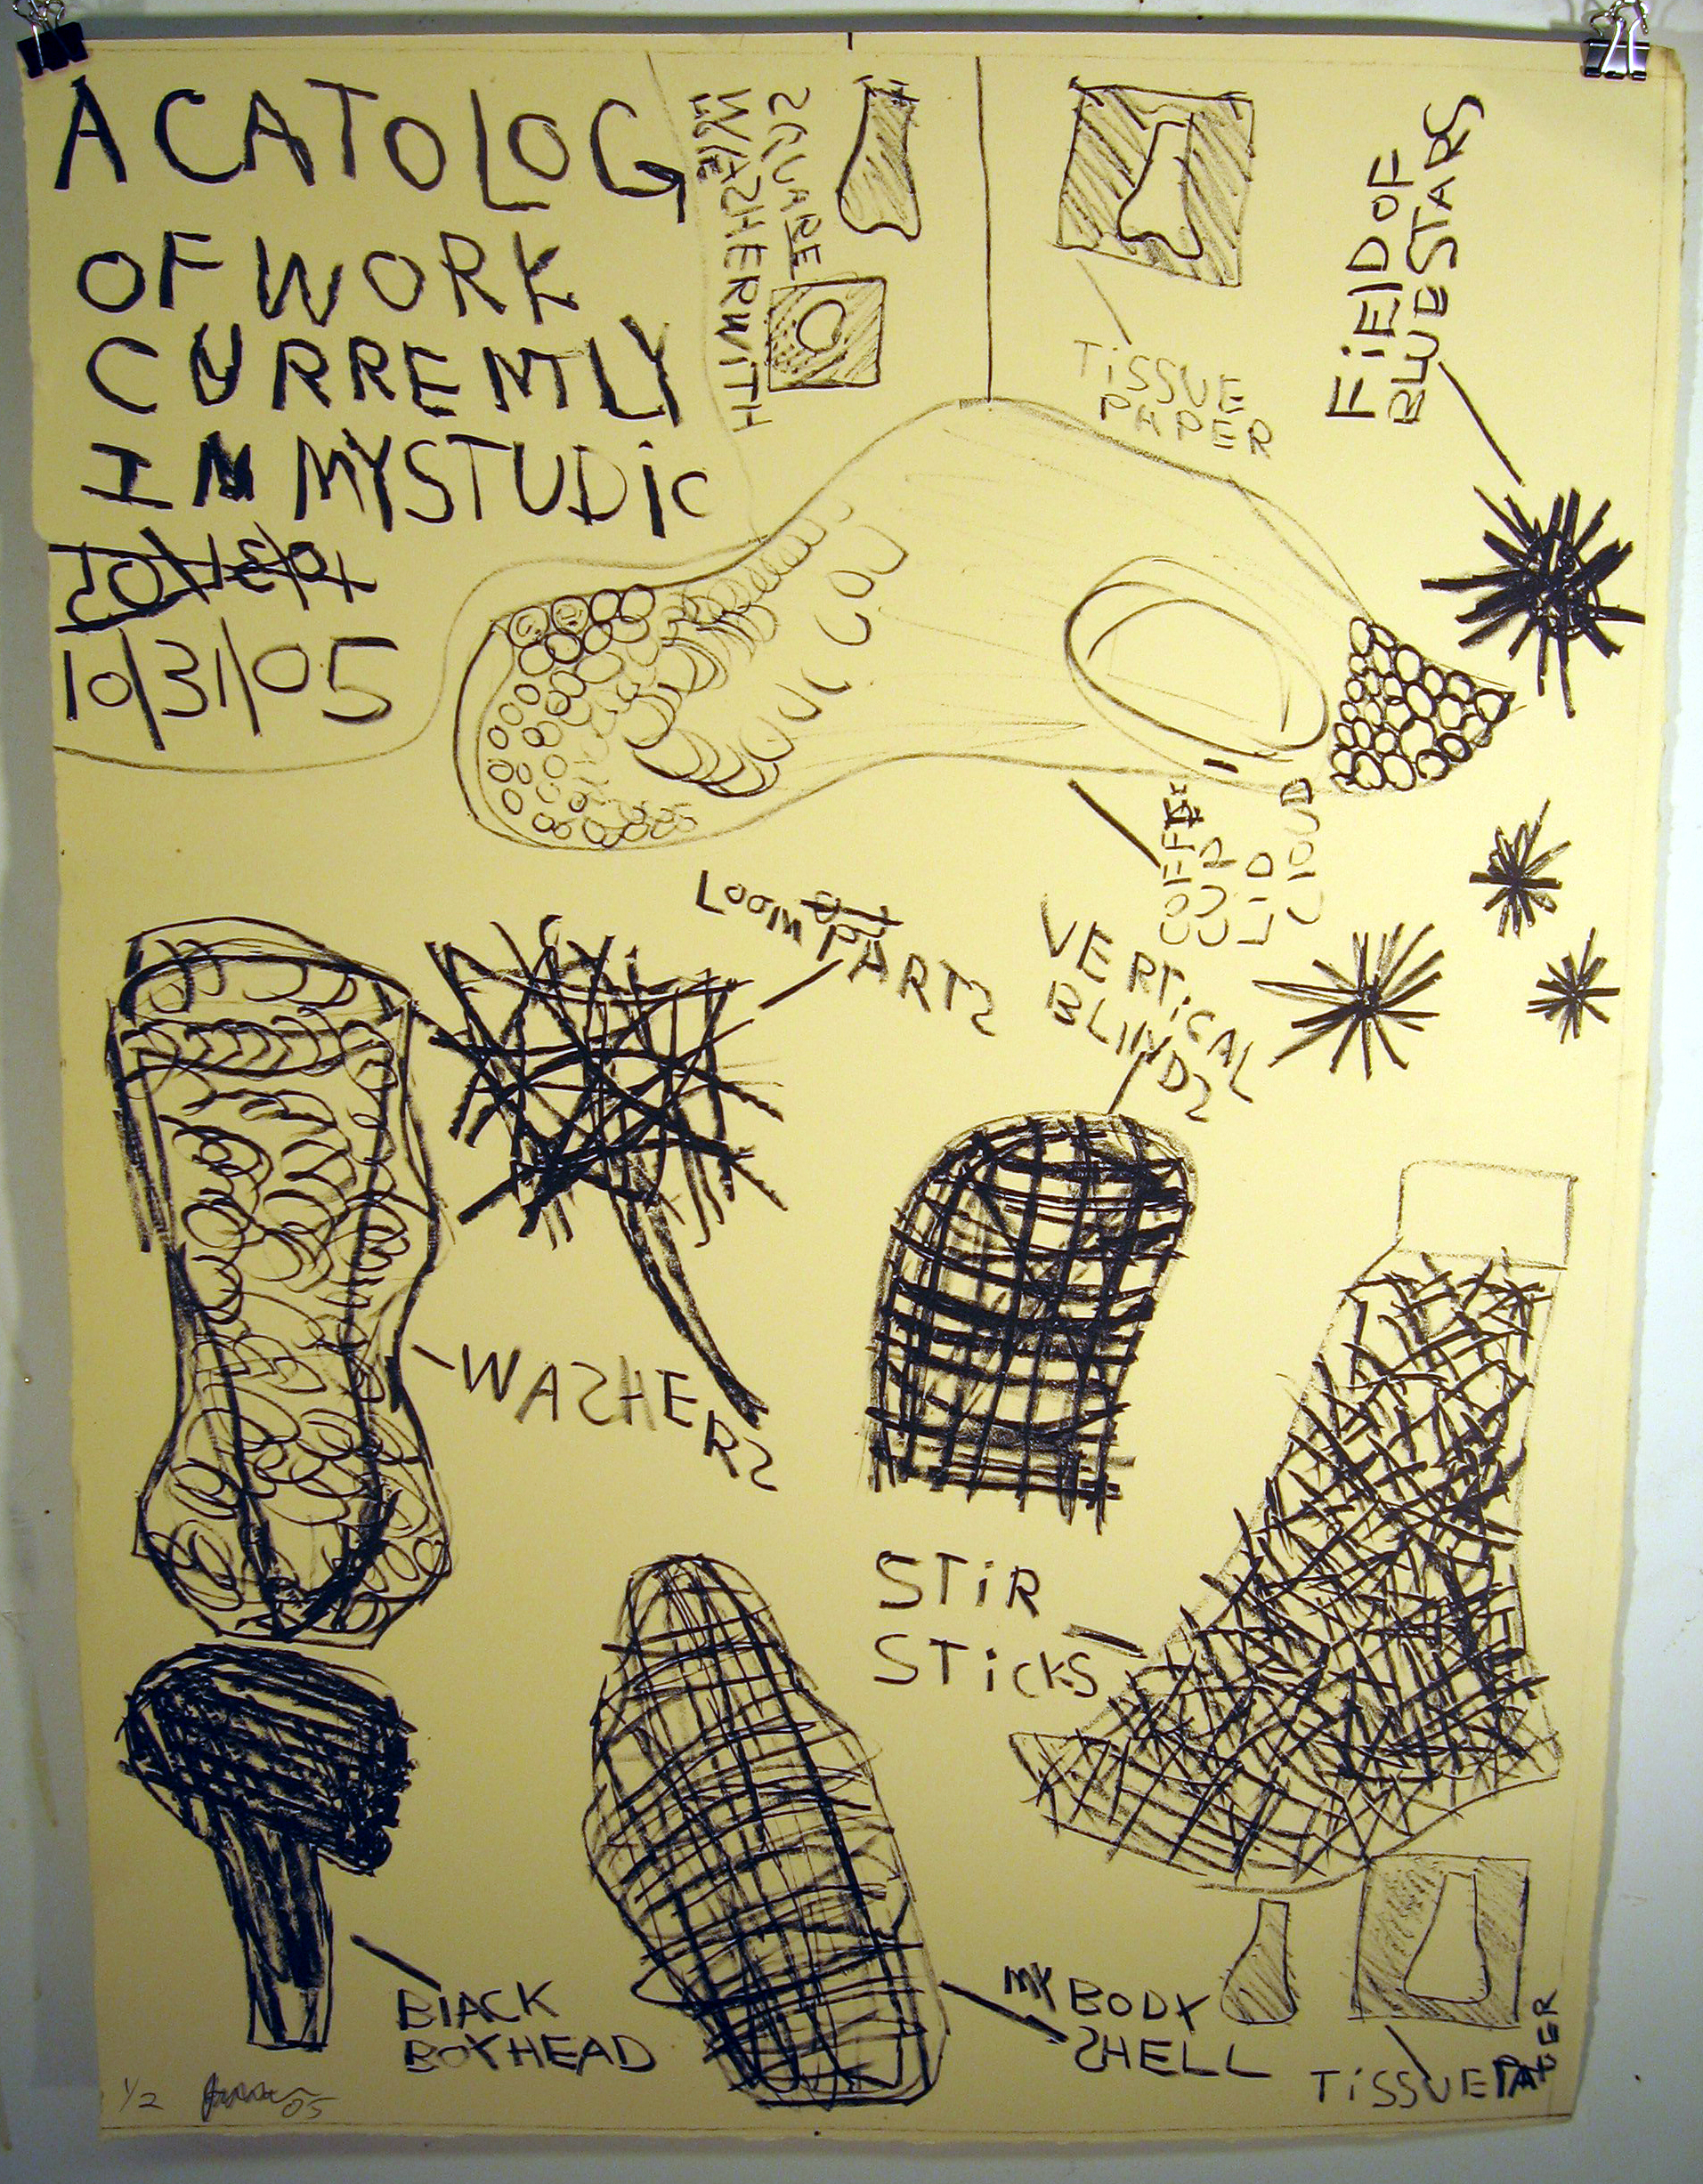 A CATOLOG
OF WORK
CURRENTLY
IN MY STUDIO
10/31/05
SQUARE
WASHER WITH
TISSUE
PAPER
FIELD OF
BLUE STARS
COFFEE
LID
CLOUD
LOOM
PARTS
VERTICAL
BLINDS
WASHERS
STIR
STICKS
BLACK
BOX HEAD
MY BODY
SHELL
TISSUE PAPER
1/2
05